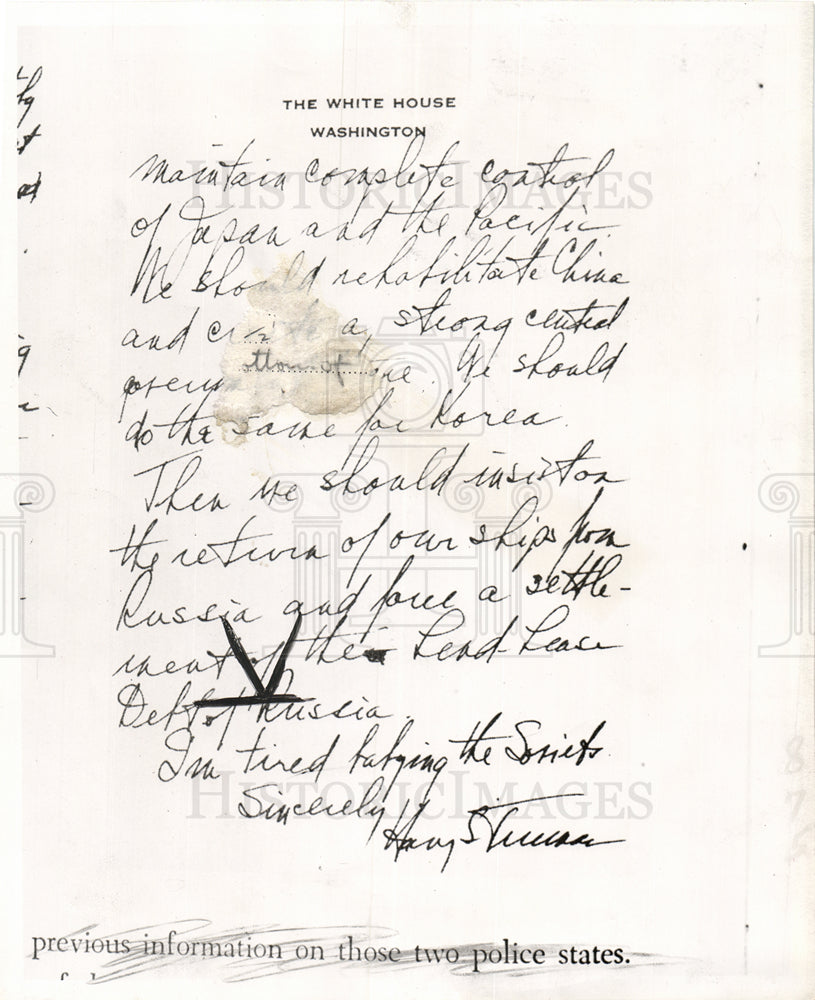 THE WHITE HOUSE
WASHINGTON
maintain complete control
of Japan and the Pacific.
We should rehabilitate China
and a strong central
there. We should
do the same for Korea.
Then we should insist on
the return of our ships from
Russia and force a settle-
ment of the Lend-Lease
Debt of Russia.
I'm tired babying the Soviets.
Sincerely
Harry S Truman
previous information on those two police states.
HISTORIC IMAGES
HISTORIC IMAGES